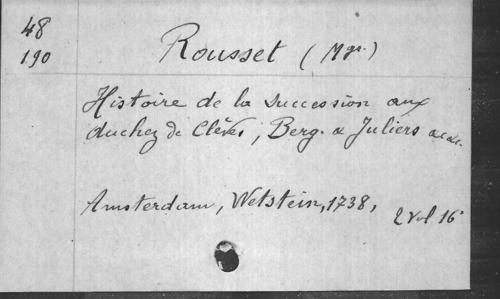 48
190
Rousset (Mgr.)
Histoire de la succession aux
duchez de Clèves, Berg. & Juliers &c&c.
Amsterdam, Wetstein, 1738,
2 vol 16°